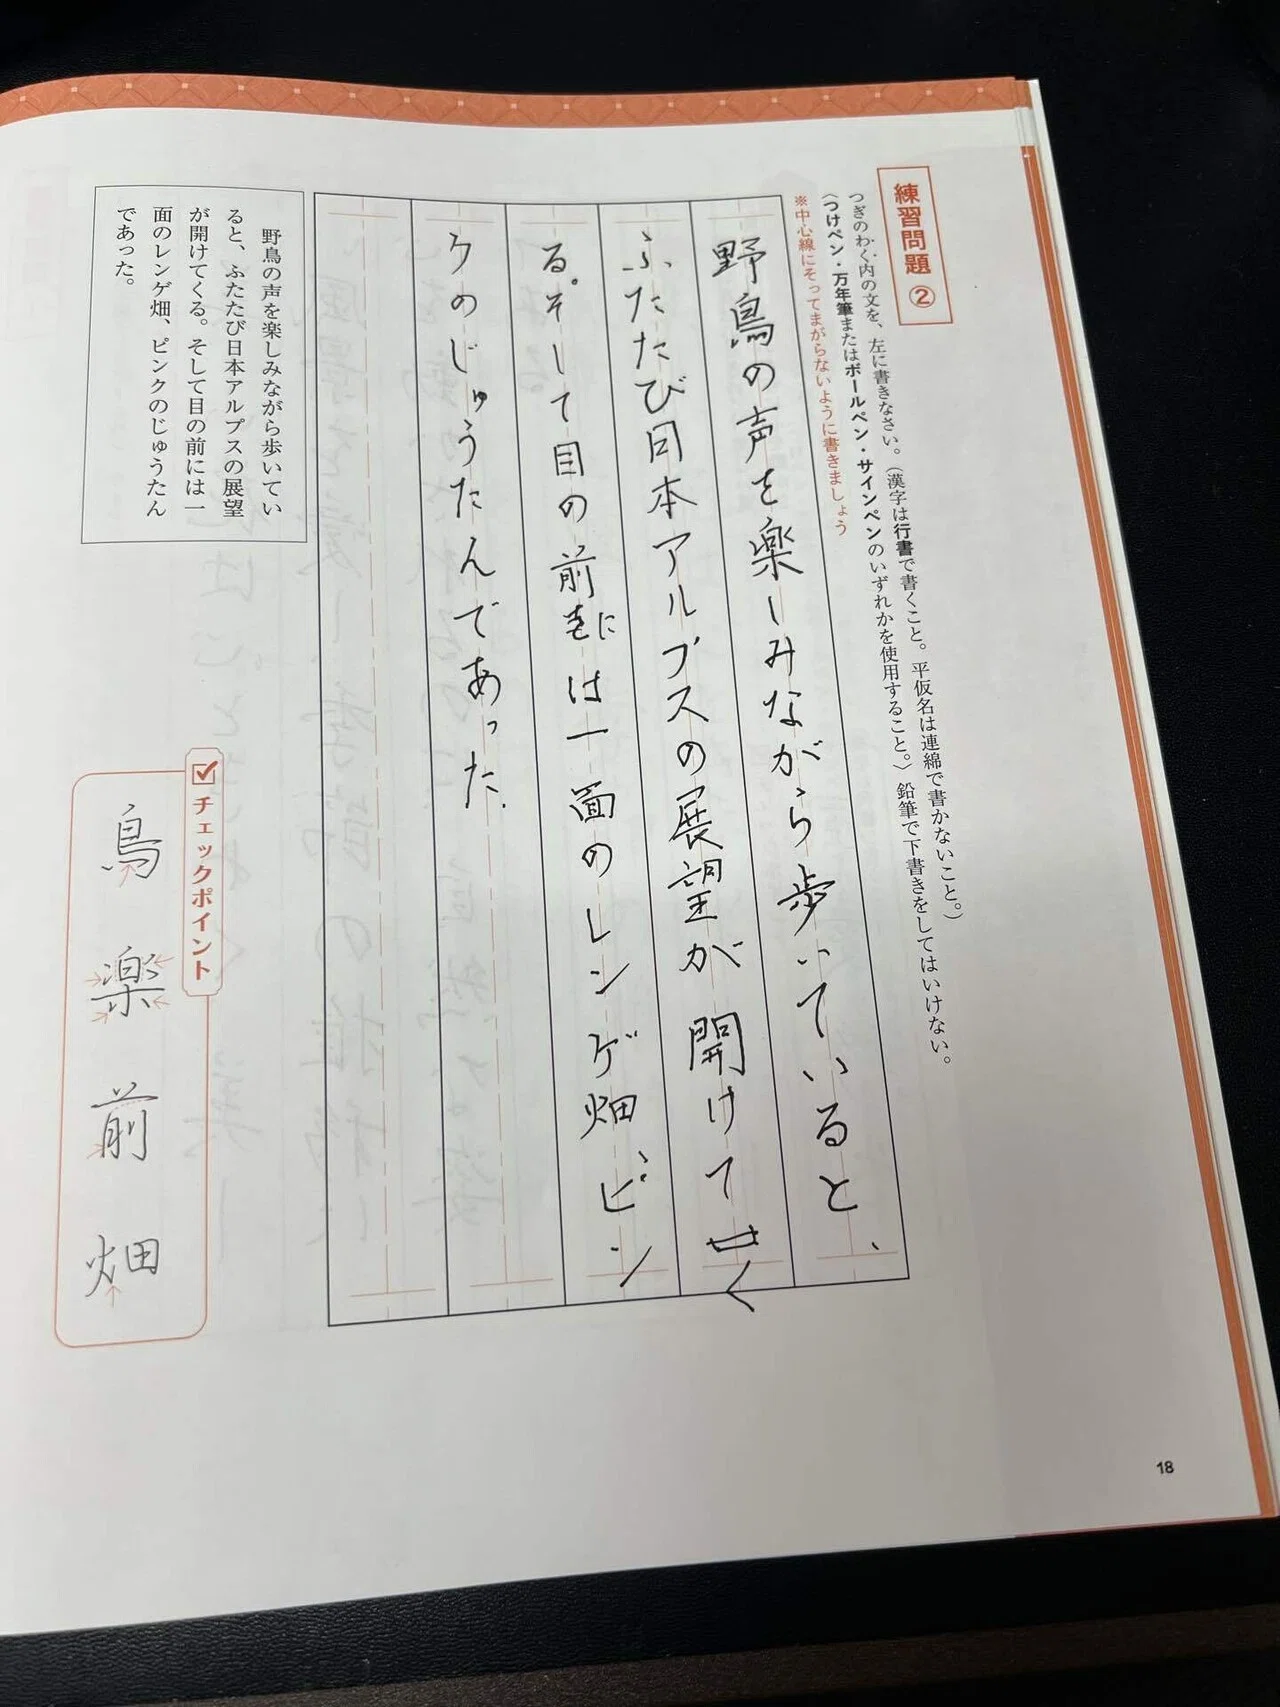 練習問題 ②
つぎのわく内の文を、左に書きなさい。（漢字は行書で書くこと。平仮名は連綿で書かないこと。）
（つけペン・万年筆またはボールペン・サインペンのいずれかを使用すること。）鉛筆で下書きをしてはいけない。
※中心線にそってまがらないように書きましょう
野鳥の声を楽しみながら歩いていると、
ふたたび日本アルプスの展望が開けてく
る。そして目の前には一面のレンゲ畑、ピン
クのじゅうたんであった。
野鳥の声を楽しみながら歩いてい
ると、ふたたび日本アルプスの展望
が開けてくる。そして目の前には一
面のレンゲ畑、ピンクのじゅうたん
であった。
チェックポイント
鳥 楽 前 畑
18